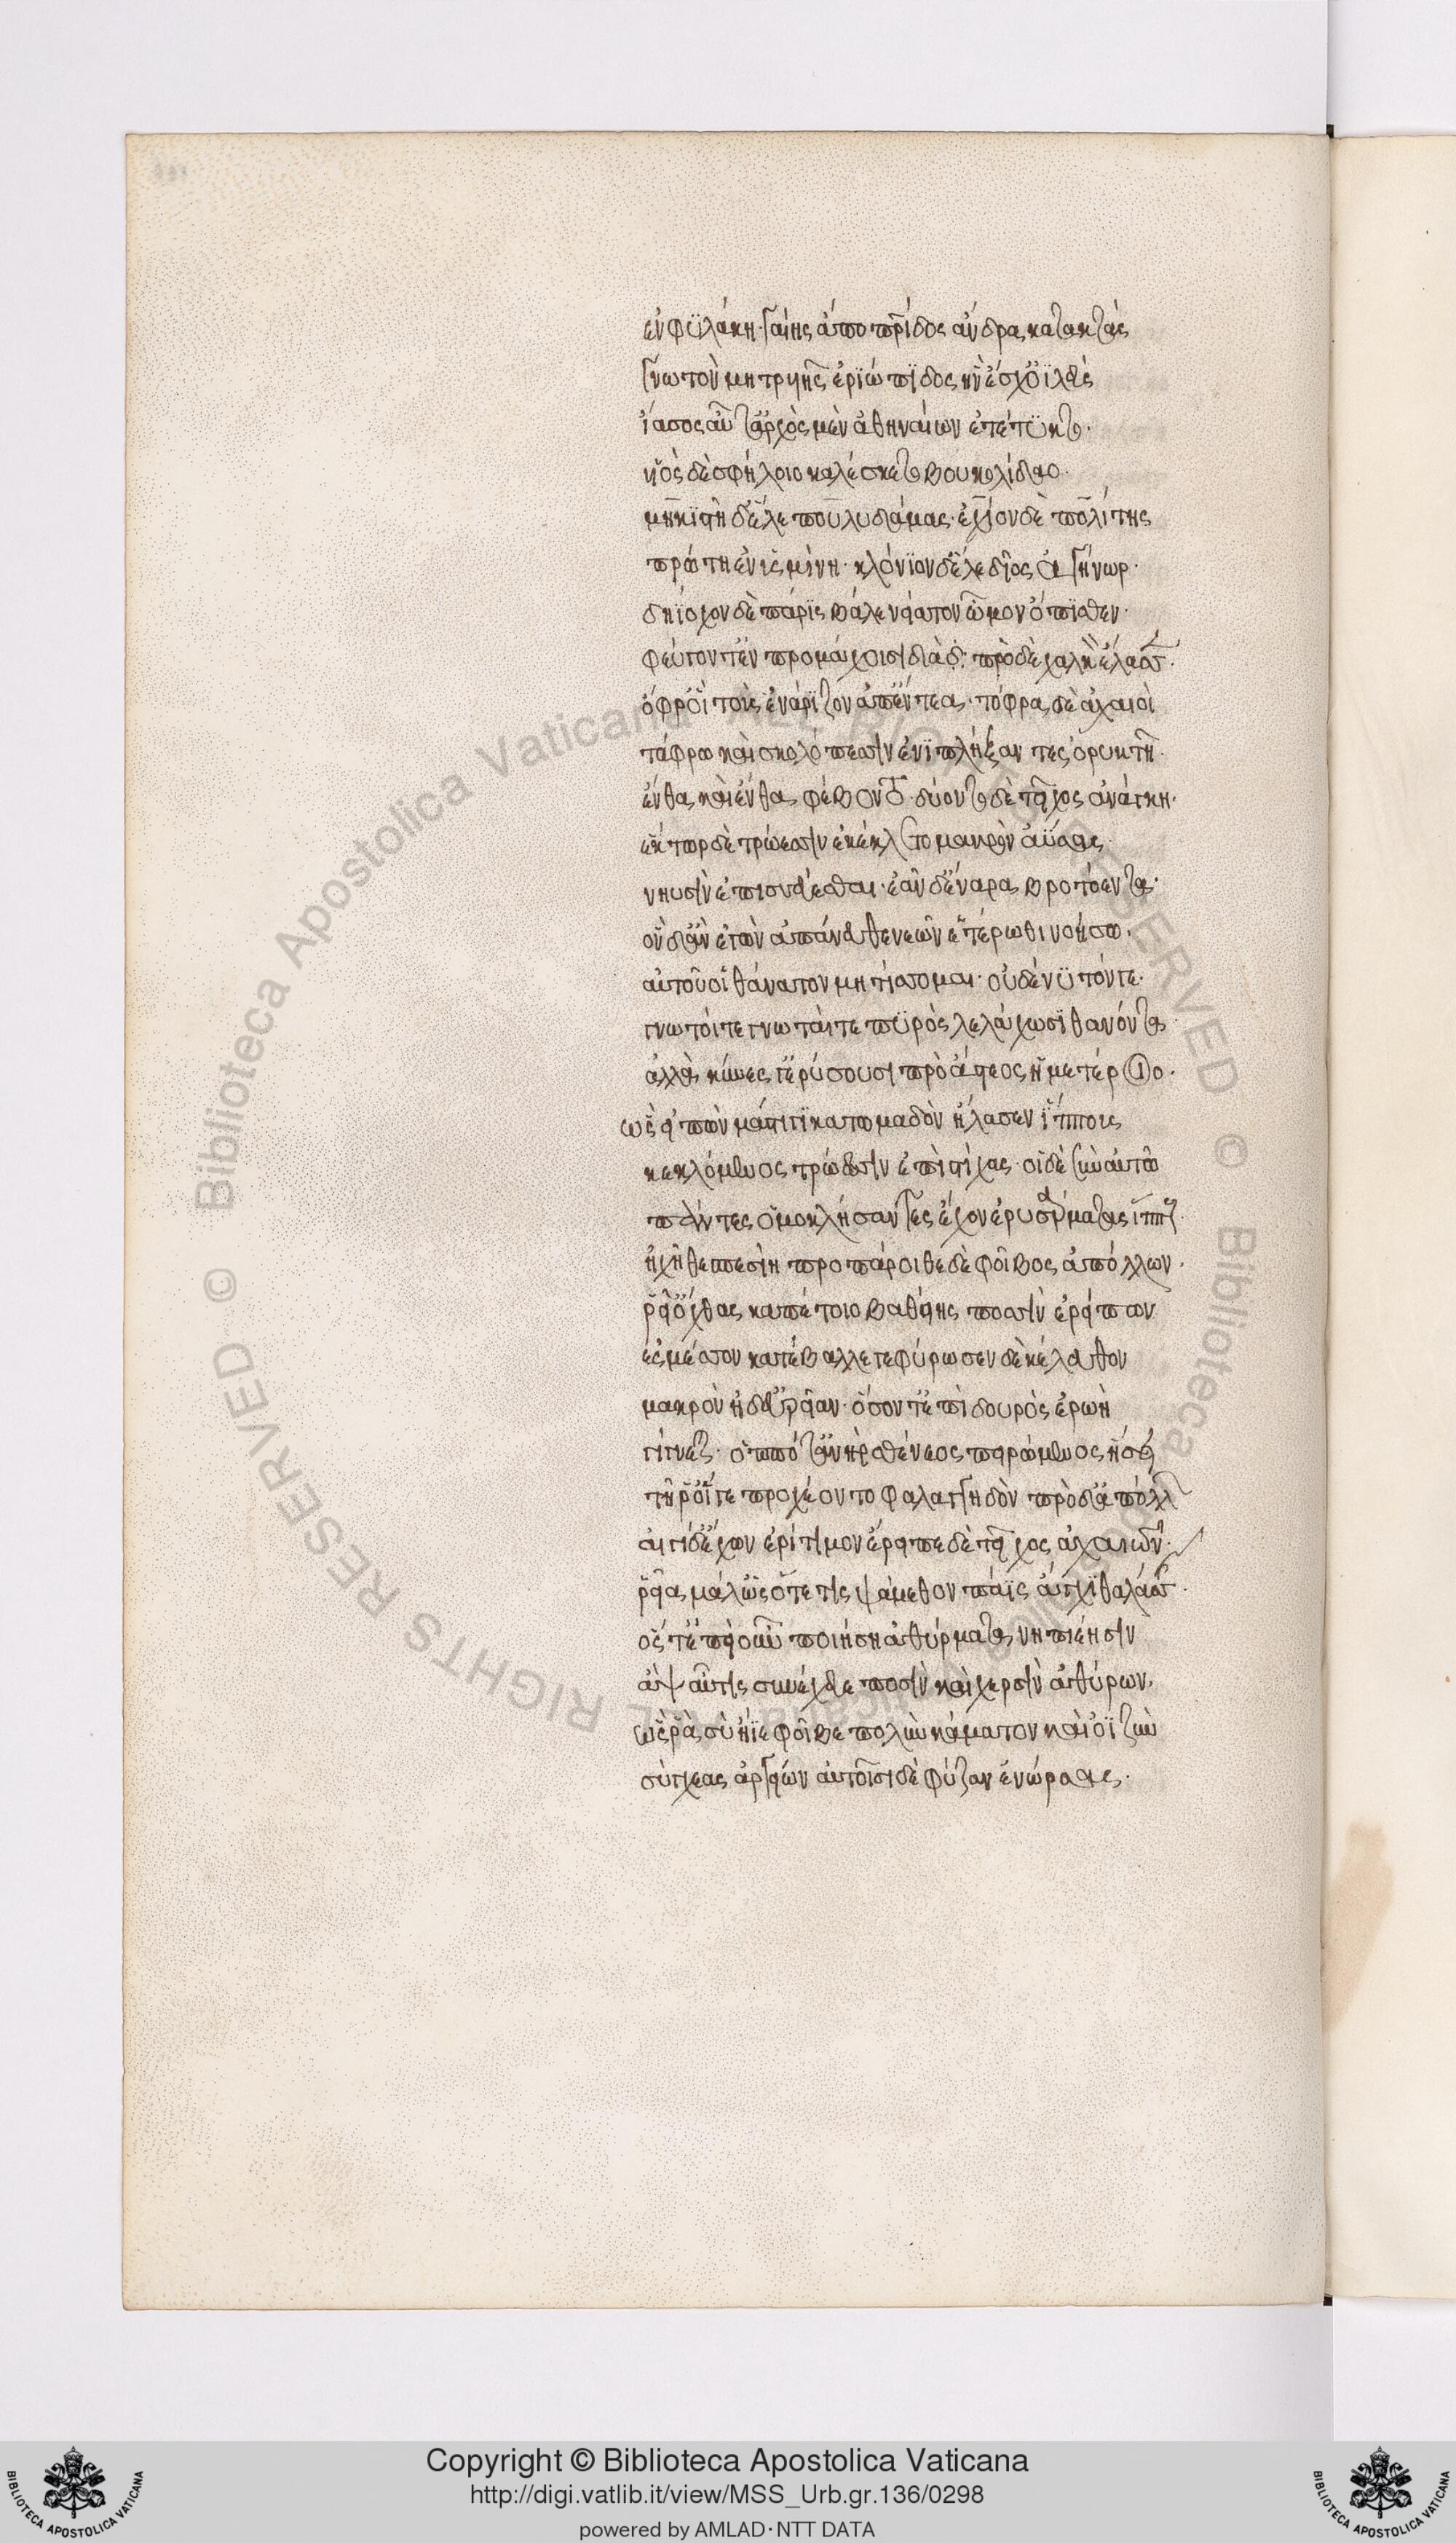 ἐν φϋλάκη· γαίης ἄπο πρίδος ἄνδρα κατακτὰς
γνωτὸν μητρυιῆς ἐρϊώπϊδος ἣν ἔσχ' ὀϊλεὺς
ἴασος αὖτ' ἀρχὸς μὲν ἀθηναίων ἐτέτϋκτο·
υἱὸς δὲ σφήλοιο καλέσκετο βουκολίδαο·
μηκϊστῆ δ' ἕλε πουλυδάμας· ἐχίον δὲ πολίτης
πρώτη ἐν ὑσμίνη· κλονϊον δ' ἕλε δῖος ἀγήνωρ·
δηίοχον δὲ πάρϊς βάλε νείατον ὦμον ὄπϊσθεν·
φεύγοντ' ἐν προμάχοισι διὰ δὲ πρὸ δὲ χαλκὸν ἔλασσε·
ὄφρ' οἱ τοὺς ἐνάρϊζον ἀπ' ἔντεα· τόφρα δὲ ἀχαιοὶ
τάφρω καὶ σκολόπεσιν ἐνϊπλήξαντες ὀρυκτῆ·
ἔνθα καὶ ἔνθα φέβοντο· δύοντο δὲ τεῖχος ἀνάγκη·
ἕκτωρ δὲ τρώεσιν ἐκέκλετο μακρὸν ἀΰσας
νηυσὶν ἐπισσεύεσθαι· ἐᾶν δ' ἔναρα βροτόεντα·
ὃν δ' ἂν ἐγὼν ἀπάνευθε νεῶν ἑτέρωθι νοήσω·
αὐτοῦ οἱ θάνατον μητίσομαι· οὐδέ νϋ τόν γε·
γνωτοί τε γνωταί τε πϋρὸς λελάχωσϊ θανόντα
ἀλλὰ κύνες γ' ἐρύουσι πρὸ ἄστεος ἡμετέροιο·
ὣς εἰπὼν μάστιγϊ κατωμαδὸν ἤλασεν ἵππους
κεκλόμενος τρώεσιν ἐπὶ στίχας· οἱ δὲ σὺν αὐτῶ
πάντες ὁμοκλήσαντες ἔχον ἐρυσάρματας ἵππους·
ἠχῆ θεσπεσίη προπάροιθε δὲ φοῖβος ἀπόλλων·
ῥεῖ' ὄχθας καπέτοιο βαθείης ποσὶν ἐρείπων
ἐς μέσσον κατέβαλλε γεφύρωσεν δὲ κέλευθον
μακρὸν ἠδ' εὐρεῖαν· ὅσον τ' ἐπὶ δουρὸς ἐρωὴ
γίγνεται· ὁππότ' ἀνὴρ σθένεος πειρώμενος ἧσι
τῆ ῥ' οἵ γε προχέοντο φαλαγγηδὸν πρὸ δ' ἀπόλλων
αἰγίδ' ἔχων ἐρίτιμον ἔρειπε δὲ τεῖχος ἀχαιῶν·
ῥεῖα μάλ' ὡς ὅτε τις ψάμαθον πάϊς ἄγχϊ θαλάσσης·
ὅς τ' ἐπεὶ οὖν ποιήση ἀθύρματα νηπιέησιν
ἂψ αὖτις συνέχευε ποσὶν καὶ χερσὶν ἀθύρων·
ὥς ῥα σὺ ἤϊε φοῖβε πολὺν κάματον καὶ ὀϊζὺν
σύγχεας ἀργείων αὐτοῖσι δὲ φύζαν ἐνῶρσας·
Copyright © Biblioteca Apostolica Vaticana
http://digi.vatlib.it/view/MSS_Urb.gr.136/0298
powered by AMLAD·NTT DATA